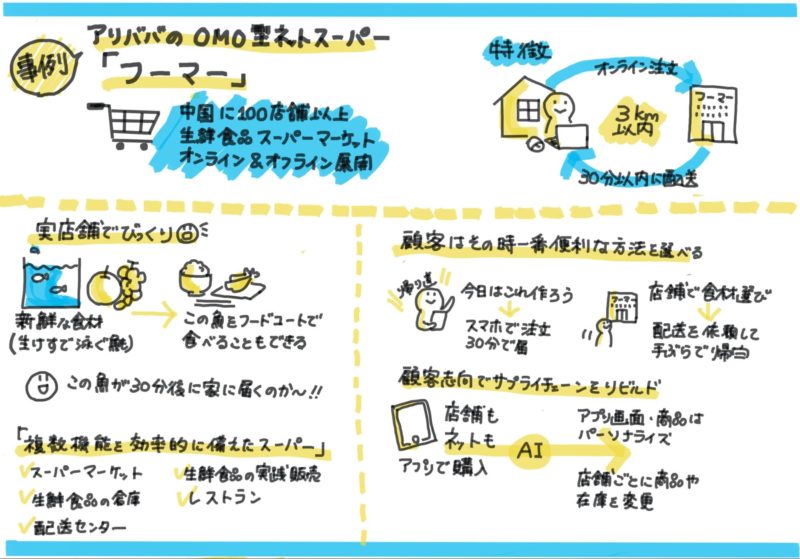 事例
アリババの OMO型ネットスーパー
「フーマー」
中国に100店舗以上
生鮮食品スーパーマーケット
オンライン&オフライン展開
特徴
オンライン注文
フーマー
3km
以内
30分以内に配送
実店舗でびっくり
新鮮な食材
(生けすで泳ぐ魚も)
この魚をフードコートで
食べることもできる
この魚が30分後に家に届くのか〜!!
「複数機能を効率的に備えたスーパー」
スーパーマーケット
生鮮食品の倉庫
配送センター
生鮮食品の実践販売
レストラン
顧客はその時一番便利な方法を選べる
帰り道
今日はこれ作ろう
スマホで注文
30分で届
フーマー
店舗で食材選び
配送を依頼して
手ぶらで帰宅
顧客志向でサプライチェーンをリビルド
店舗も
ネットも
アプリで購入
AI
アプリ画面・商品は
パーソナライズ
店舗ごとに商品や
在庫を変更